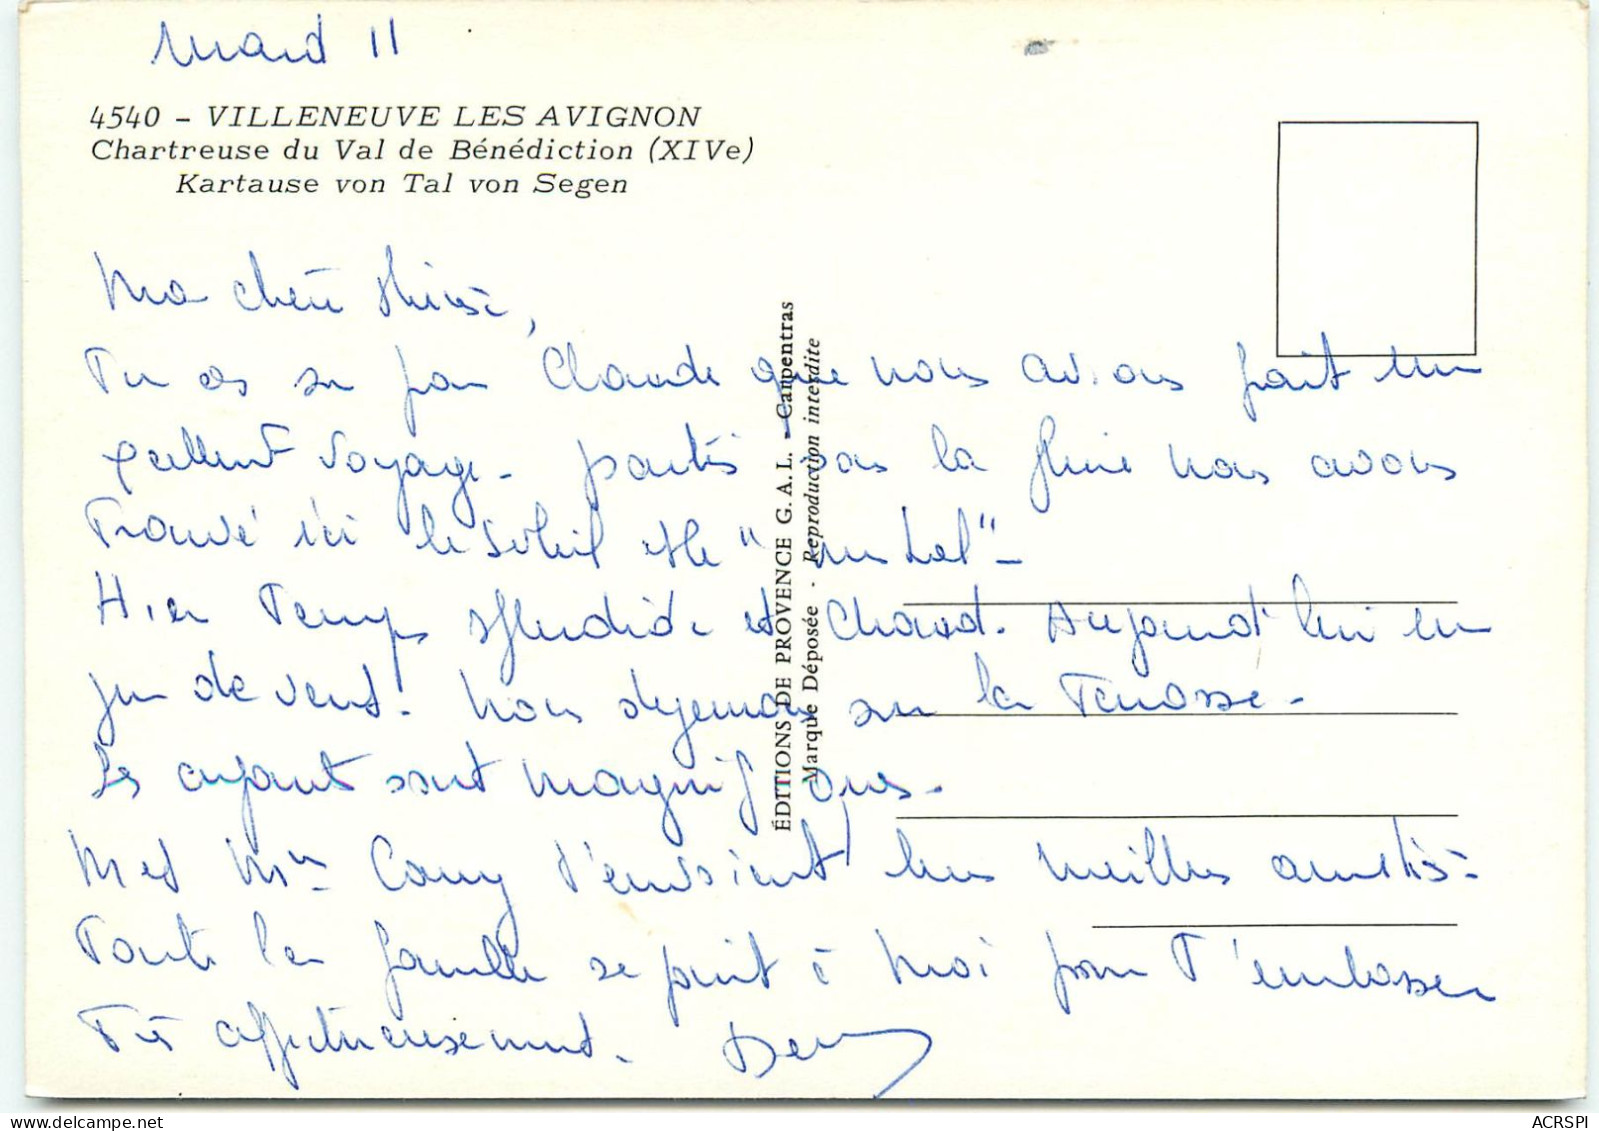 Mardi 11
4540 - VILLENEUVE LES AVIGNON
Chartreuse du Val de Bénédiction (XIVe)
Kartause von Tal von Segen
Ma chère
Tu as su par Claude que nous avions fait un
excellent voyage - partis sous la pluie nous avons
Trouvé ici le soleil et le "mistral" -
Hier Temps splendide et chaud. Aujourd'hui un
peu de vent. Nous déjeunons sur la Terrasse -
Les enfants sont magnifiques.
M et Mme Couy t'envoient leurs meilleures amitiés -
Toute la famille se joint à moi pour T'embrasser
Très affectueusement.
ÉDITIONS DE PROVENCE G. A. L. - Carpentras
Marque Déposée - Reproduction interdite
delcampe.net
ACRSPI